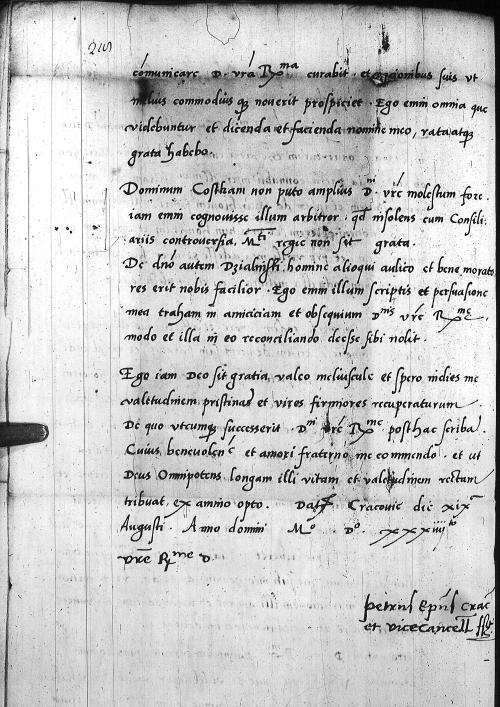 cōmunicare D. vr̄a R^ma curabit et rationibus suis vt
melius commodius q̨ nouerit prospiciet. Ego enim omnia que
videbuntur et dicenda et facienda nomine meo, rata atq̨
grata habebo.
Dominum Costkam non puto amplius D^ni vr̄e molestum fore.
iam enim cognouisse illum arbitror. qd insolens cum Consili-
ariis controuersia, M^ti regie non sit grata.
De dn̄o autem Dzialinski homine alioqui aulico et bene morato
res erit nobis facilior. Ego enim illum scriptis et persuasione
mea traham in amiciciam et obsequium D^nis vr̄e R^me,
modo et illa in eo reconciliando deesse sibi nolit.
Ego iam Deo sit gratia, valeo meliuscule et spero indies me
valetudinem pristinam et vires firmiores recuperaturum.
De quo vtcumq̨ successerit. D^ni vr̄e R^me posthac scribam.
Cuius beneuolen^e et amori fraterno me commendo. et ut
Deus Omnipotens longam illi vitam et valetudinem rectam
tribuat, ex animo opto. Dat Cracouie die xix^a
Augusti. Anno domini M^o. D^o. xxxiiii^to
vr̄e R^me D.
petrus Ep̄us Crac̄
et vicecancell